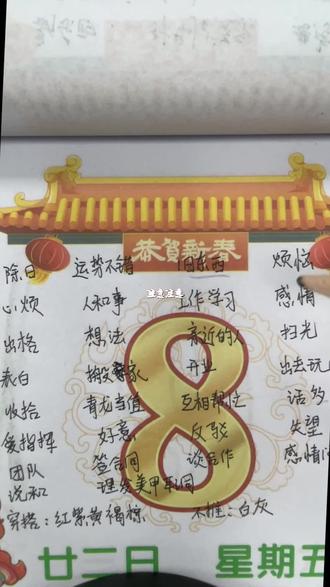 恭賀新春
除日 运势不错 旧东西 烦恼
心烦 人和事 工作学习 感情
出格 想法 亲近的人 扫光
表白 搬家 开业 出去玩
收拾 青龙当值 互相帮忙 话多
爱指挥 好意 反驳 失望
团队 签合同 谈合作 感情
说和 理发美甲
穿搭：红紫黄褐棕 不推：白灰
8
廿二日 星期五